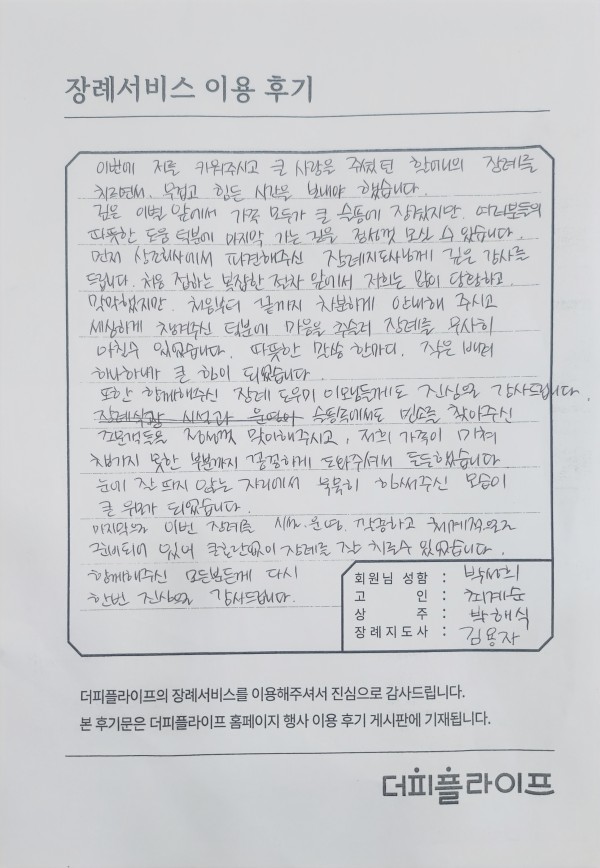 장례서비스 이용 후기
이번에 저를 키워주시고 큰 사랑을 주셨던 할머니의 장례를
치르면서, 무겁고 힘든 시간을 보내야 했습니다.
깊은 이별 앞에서 가족 모두가 큰 슬픔에 잠겼지만, 여러분들의
따뜻한 도움 덕분에 마지막 가는 길을 정성껏 모실 수 있었습니다.
먼저 상조회사에서 파견해주신 장례지도사님께 깊은 감사를
드립니다. 처음 접하는 복잡한 절차 앞에서 저희는 많이 당황하고,
막막했지만, 처음부터 끝까지 차분하게 안내해 주시고
세심하게 챙겨주신 덕분에 마음을 추슬러 장례를 무사히
마칠수 있었습니다. 따뜻한 말씀 한마디, 작은 배려
하나하나가 큰 힘이 되었습니다.
또한 함께해주신 장례 도우미 이모님들께도 진심으로 감사드립니다.
장례식장 시설과 운영이 슬픔속에서도 빈소를 찾아주신
조문객들을 정성껏 맞이해주시고, 저희 가족이 미처
챙기지 못한 부분까지 꼼꼼하게 도와주셔서 든든했습니다.
눈에 잘 띄지 않는 자리에서 묵묵히 힘써주신 모습이
큰 위로가 되었습니다.
마지막으로 이번 장례를 시설·운영 깔끔하고 체계적으로
준비되어 있어 큰혼란없이 장례를 잘 치를수 있었습니다.
함께해주신 모든분들께 다시
한번 진심으로 감사드립니다.
회원님 성함 : 박성희
고 인 : 최계순
상 주 : 박해식
장례지도사 : 김용자
더피플라이프의 장례서비스를 이용해주셔서 진심으로 감사드립니다.
본 후기문은 더피플라이프 홈페이지 행사 이용 후기 게시판에 기재됩니다.
더피플라이프